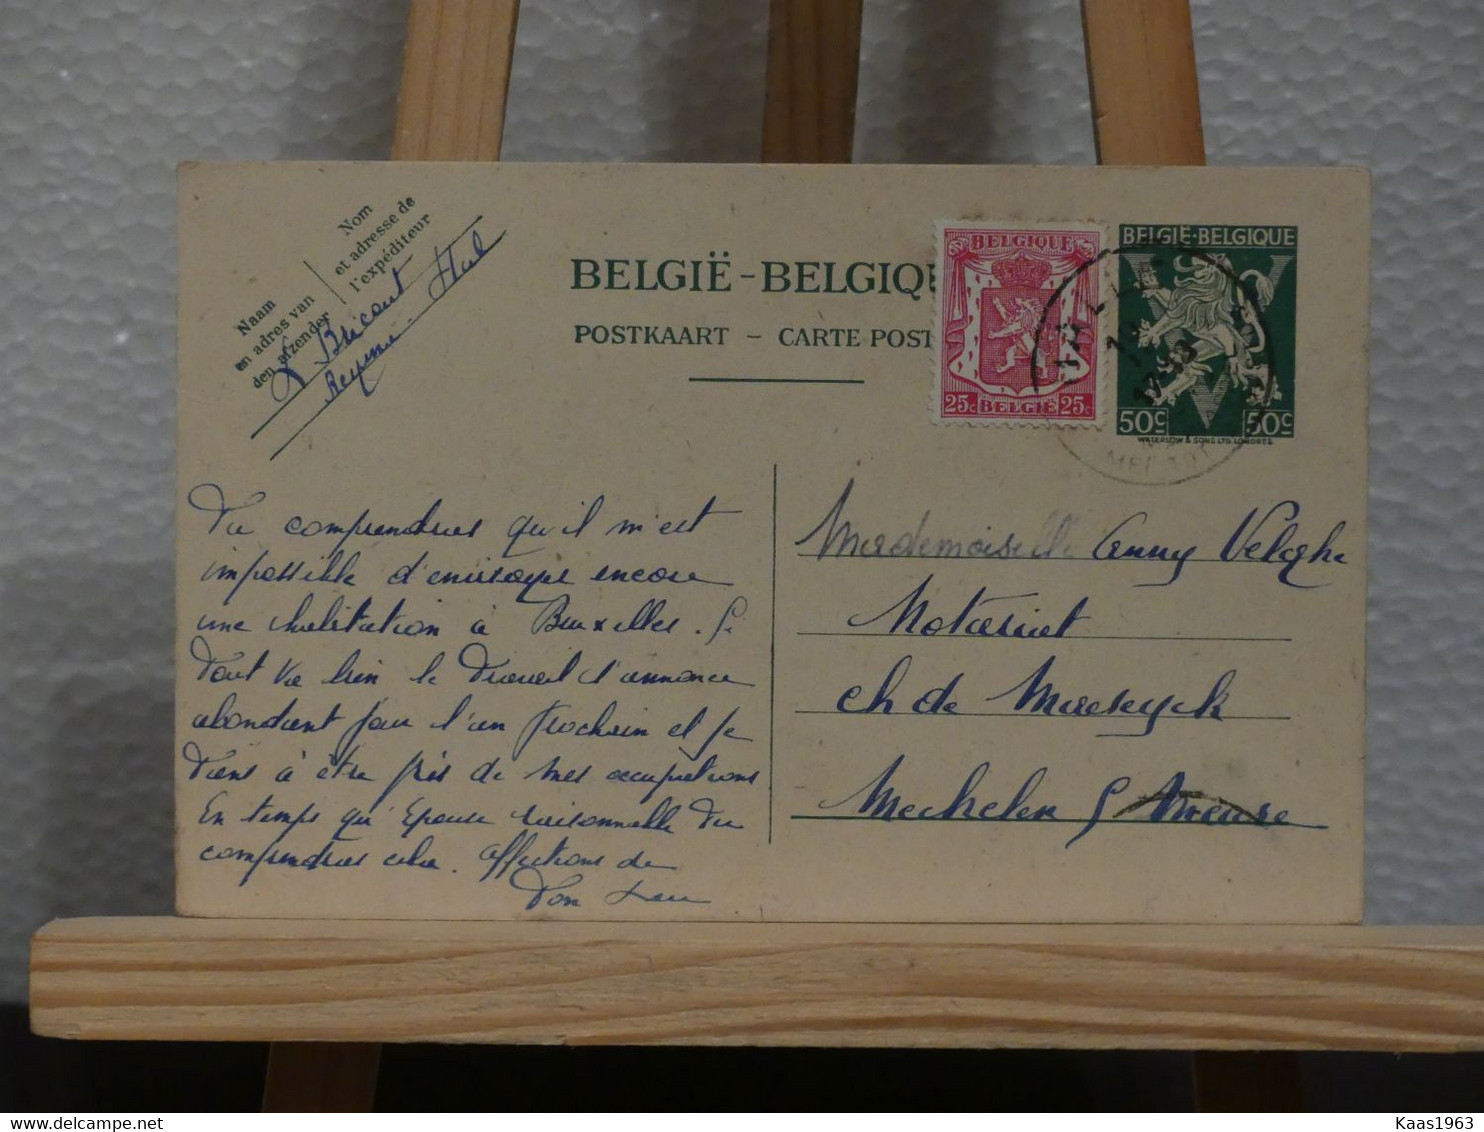 Nom
et adresse de
l'expéditeur
Naam
en adres van
den afzender
Bricout
BELGIË - BELGIQ
POSTKAART - CARTE POST
BELGIQUE
25c BELGIË 25c
BELGIË-BELGIQUE
50c 50c
WATERLOW & SONS LTD. LONDRES.
Tu comprendras qu'il m'est
impossible d'envisager encore
une habitation à Bruxelles. Si
tout va bien le travail s'annonce
abondant pour l'an prochain et je
tiens à être près de mes occupations
En temps qu'épouse raisonnable tu
comprendras cela. Affections de
Ton
Mademoiselle Anny Velghe
Notariat
ch de Maeseyck
Mechelen s/ Meuse
Kaas1963